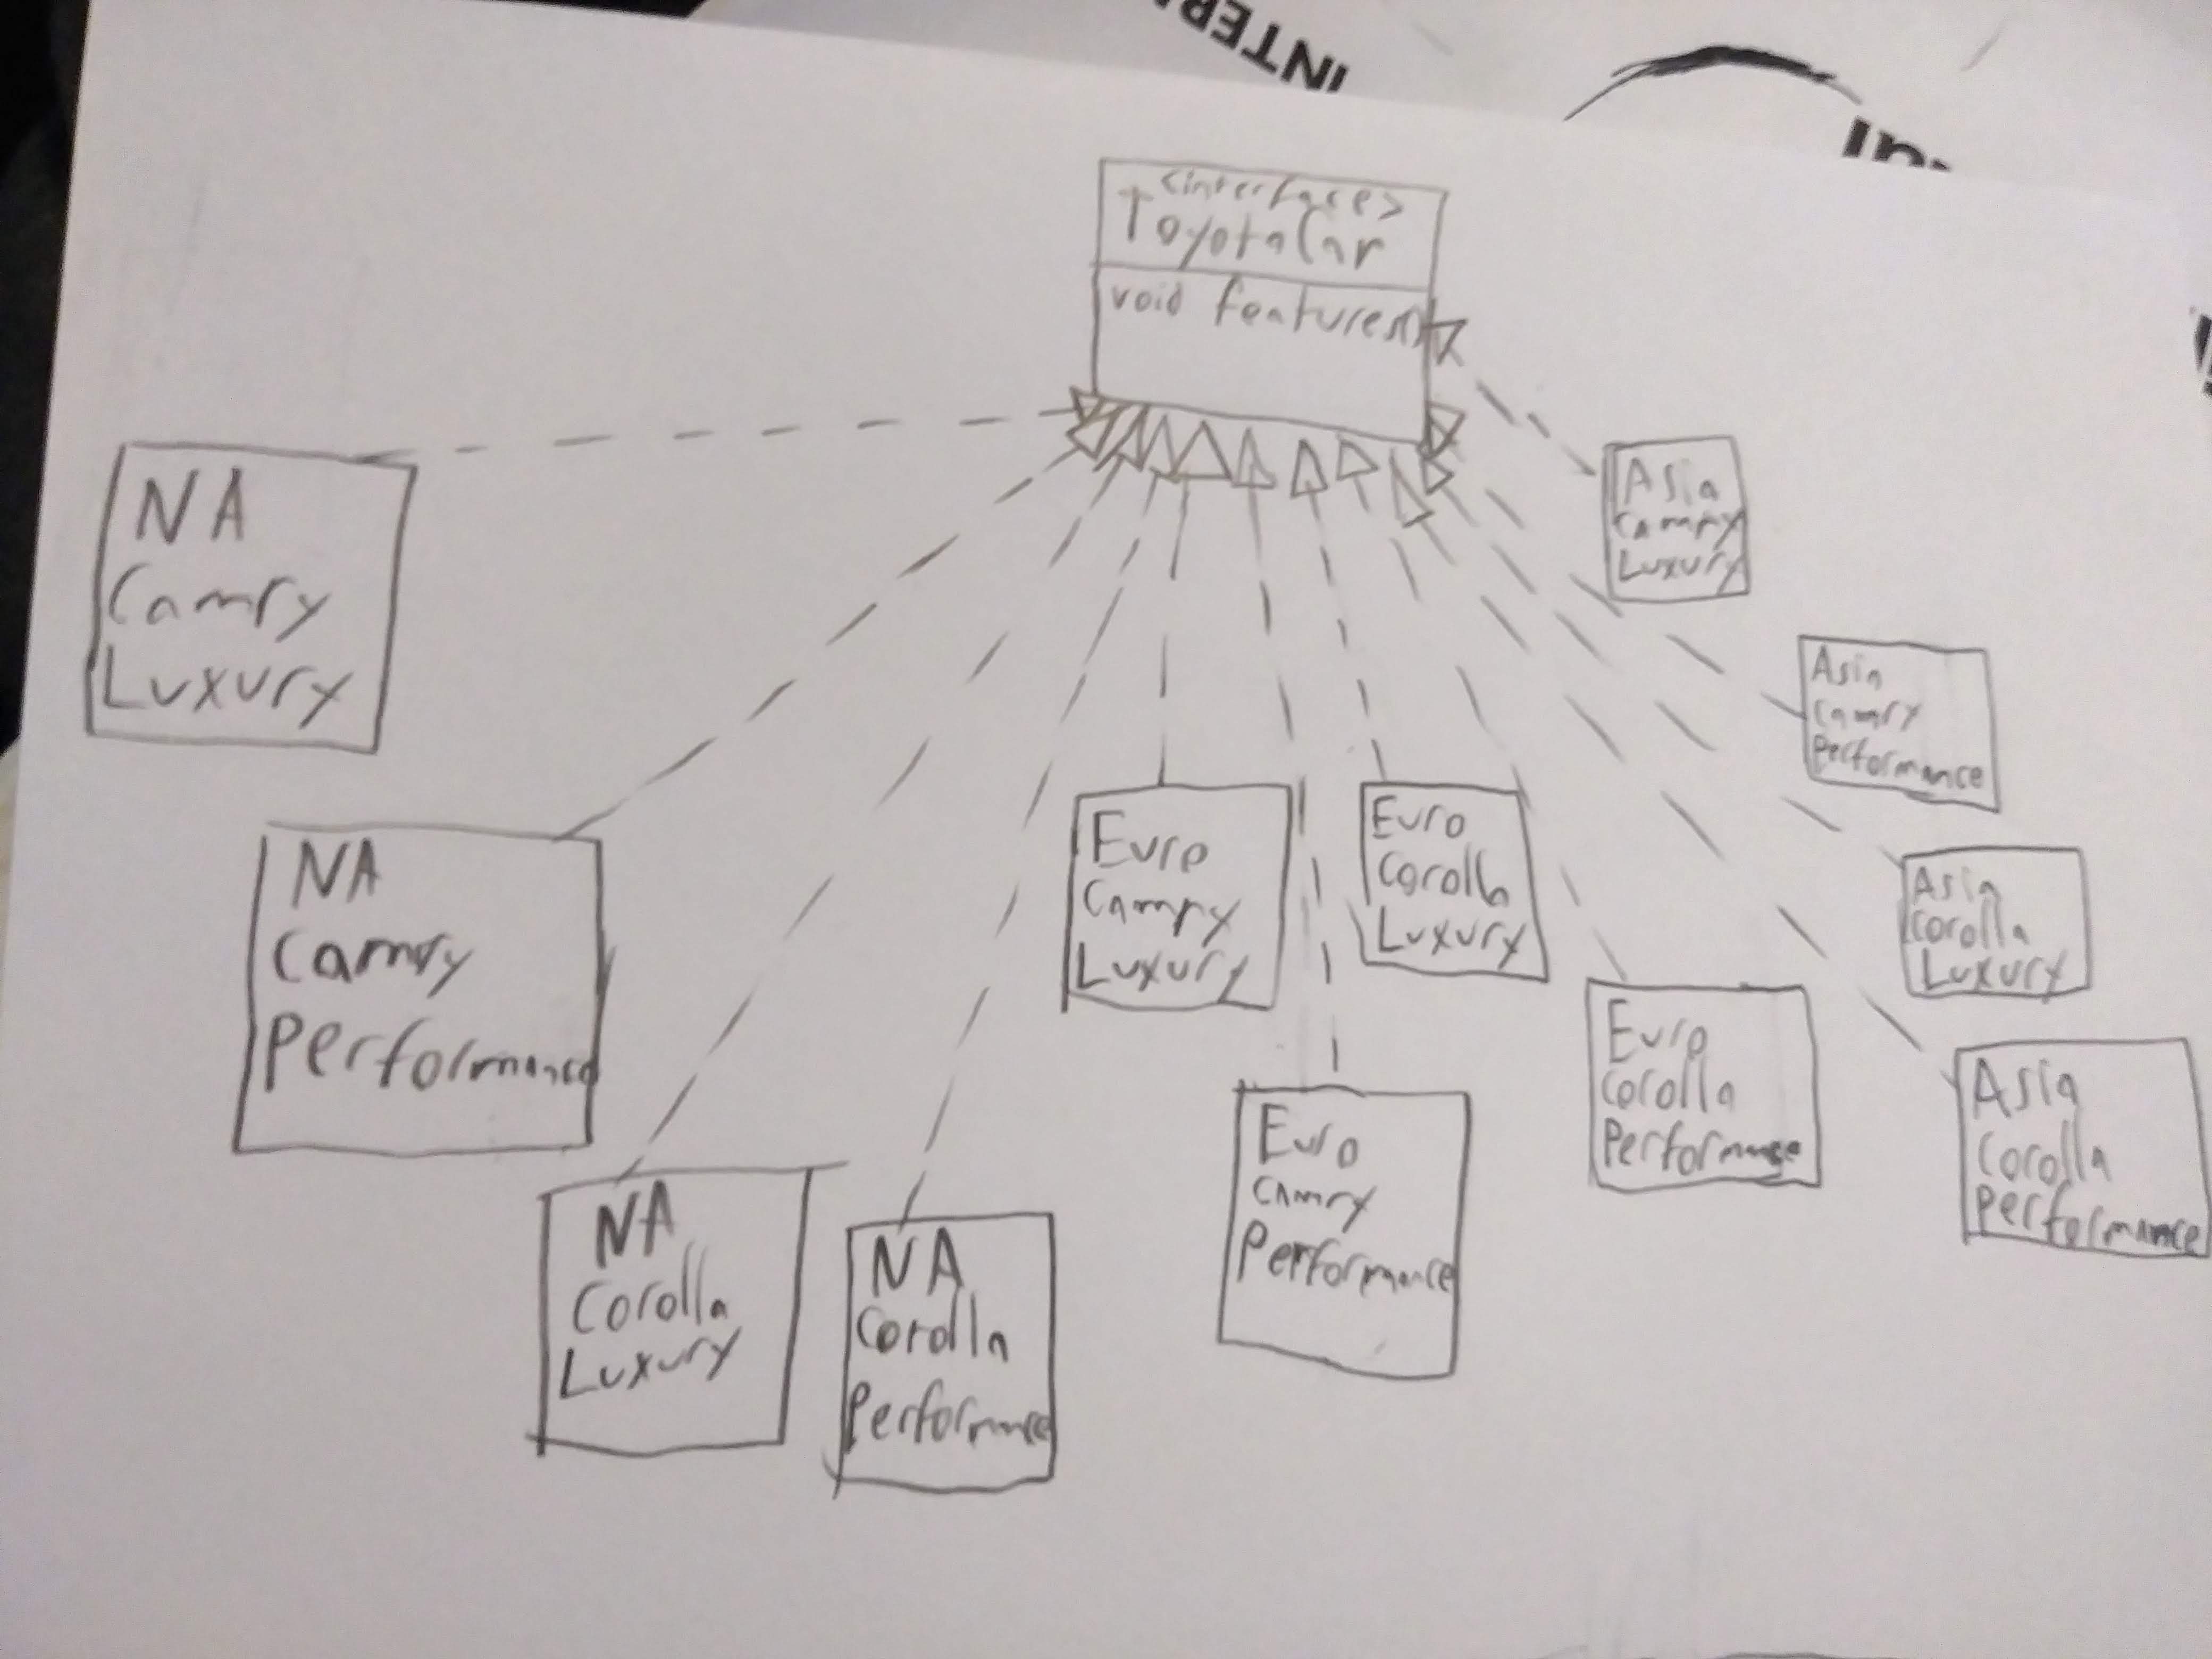 INTER
<interface>
ToyotaCar
void features()
NA
Camry
Luxury
NA
Camry
Performance
NA
Corolla
Luxury
NA
Corolla
Performance
Euro
Camry
Luxury
Euro
Camry
Performance
Euro
Corolla
Luxury
Euro
Corolla
Performance
Asia
Camry
Luxury
Asia
Camry
Performance
Asia
Corolla
Luxury
Asia
Corolla
Performance